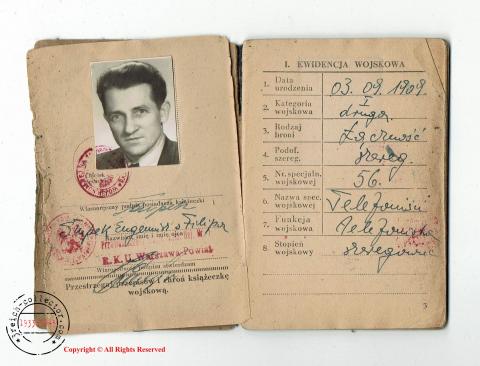 Własnoręczny podpis posiadacza książeczki
Eugeniusz s. Filipa
Nazwisko, imię i imię ojca
R.K.U. Warszawa-Powiat
Przestrzegaj przepisów i chroń książeczkę
wojskową.
I. EWIDENCJA WOJSKOWA
1. Data urodzenia 03. 09. 1909.
2. Kategoria wojskowa I druga
3. Rodzaj broni Łączność
4. Podof. szereg. szereg.
5. Nr. specjaln. wojskowej 56.
6. Nazwa spec. wojskowej Telefoniści
7. Funkcja wojskowa telefonista
8. Stopień wojskowy szeregowiec
3
3reich-collector.com
1933-1945
Copyright © All Rights Reserved